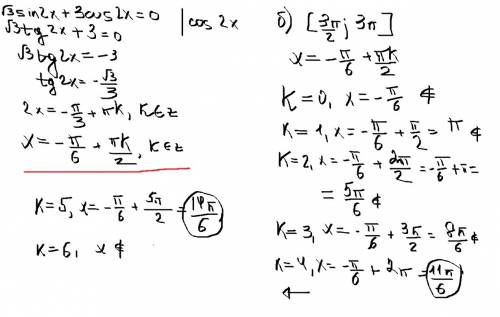 √3sin2x+3cos2x=0 | cos 2x
√3tg2x+3=0
√3tg2x=-3
tg2x=-√3/3
2x=-π/3+πK, K∈z
x=-π/6+πK/2, K∈z
K=5, x=-π/6+5π/2=14π/6
K=6, x∉
б) [3π/2; 3π]
x=-π/6+πK/2
K=0, x=-π/6 ∉
K=1, x=-π/6+π/2=π ∉
K=2, x=-π/6+2π/2=-π/6+π=
=5π/6 ∉
K=3, x=-π/6+3π/2=8π/6 ∉
K=4, x=-π/6+2π=11π/6
←